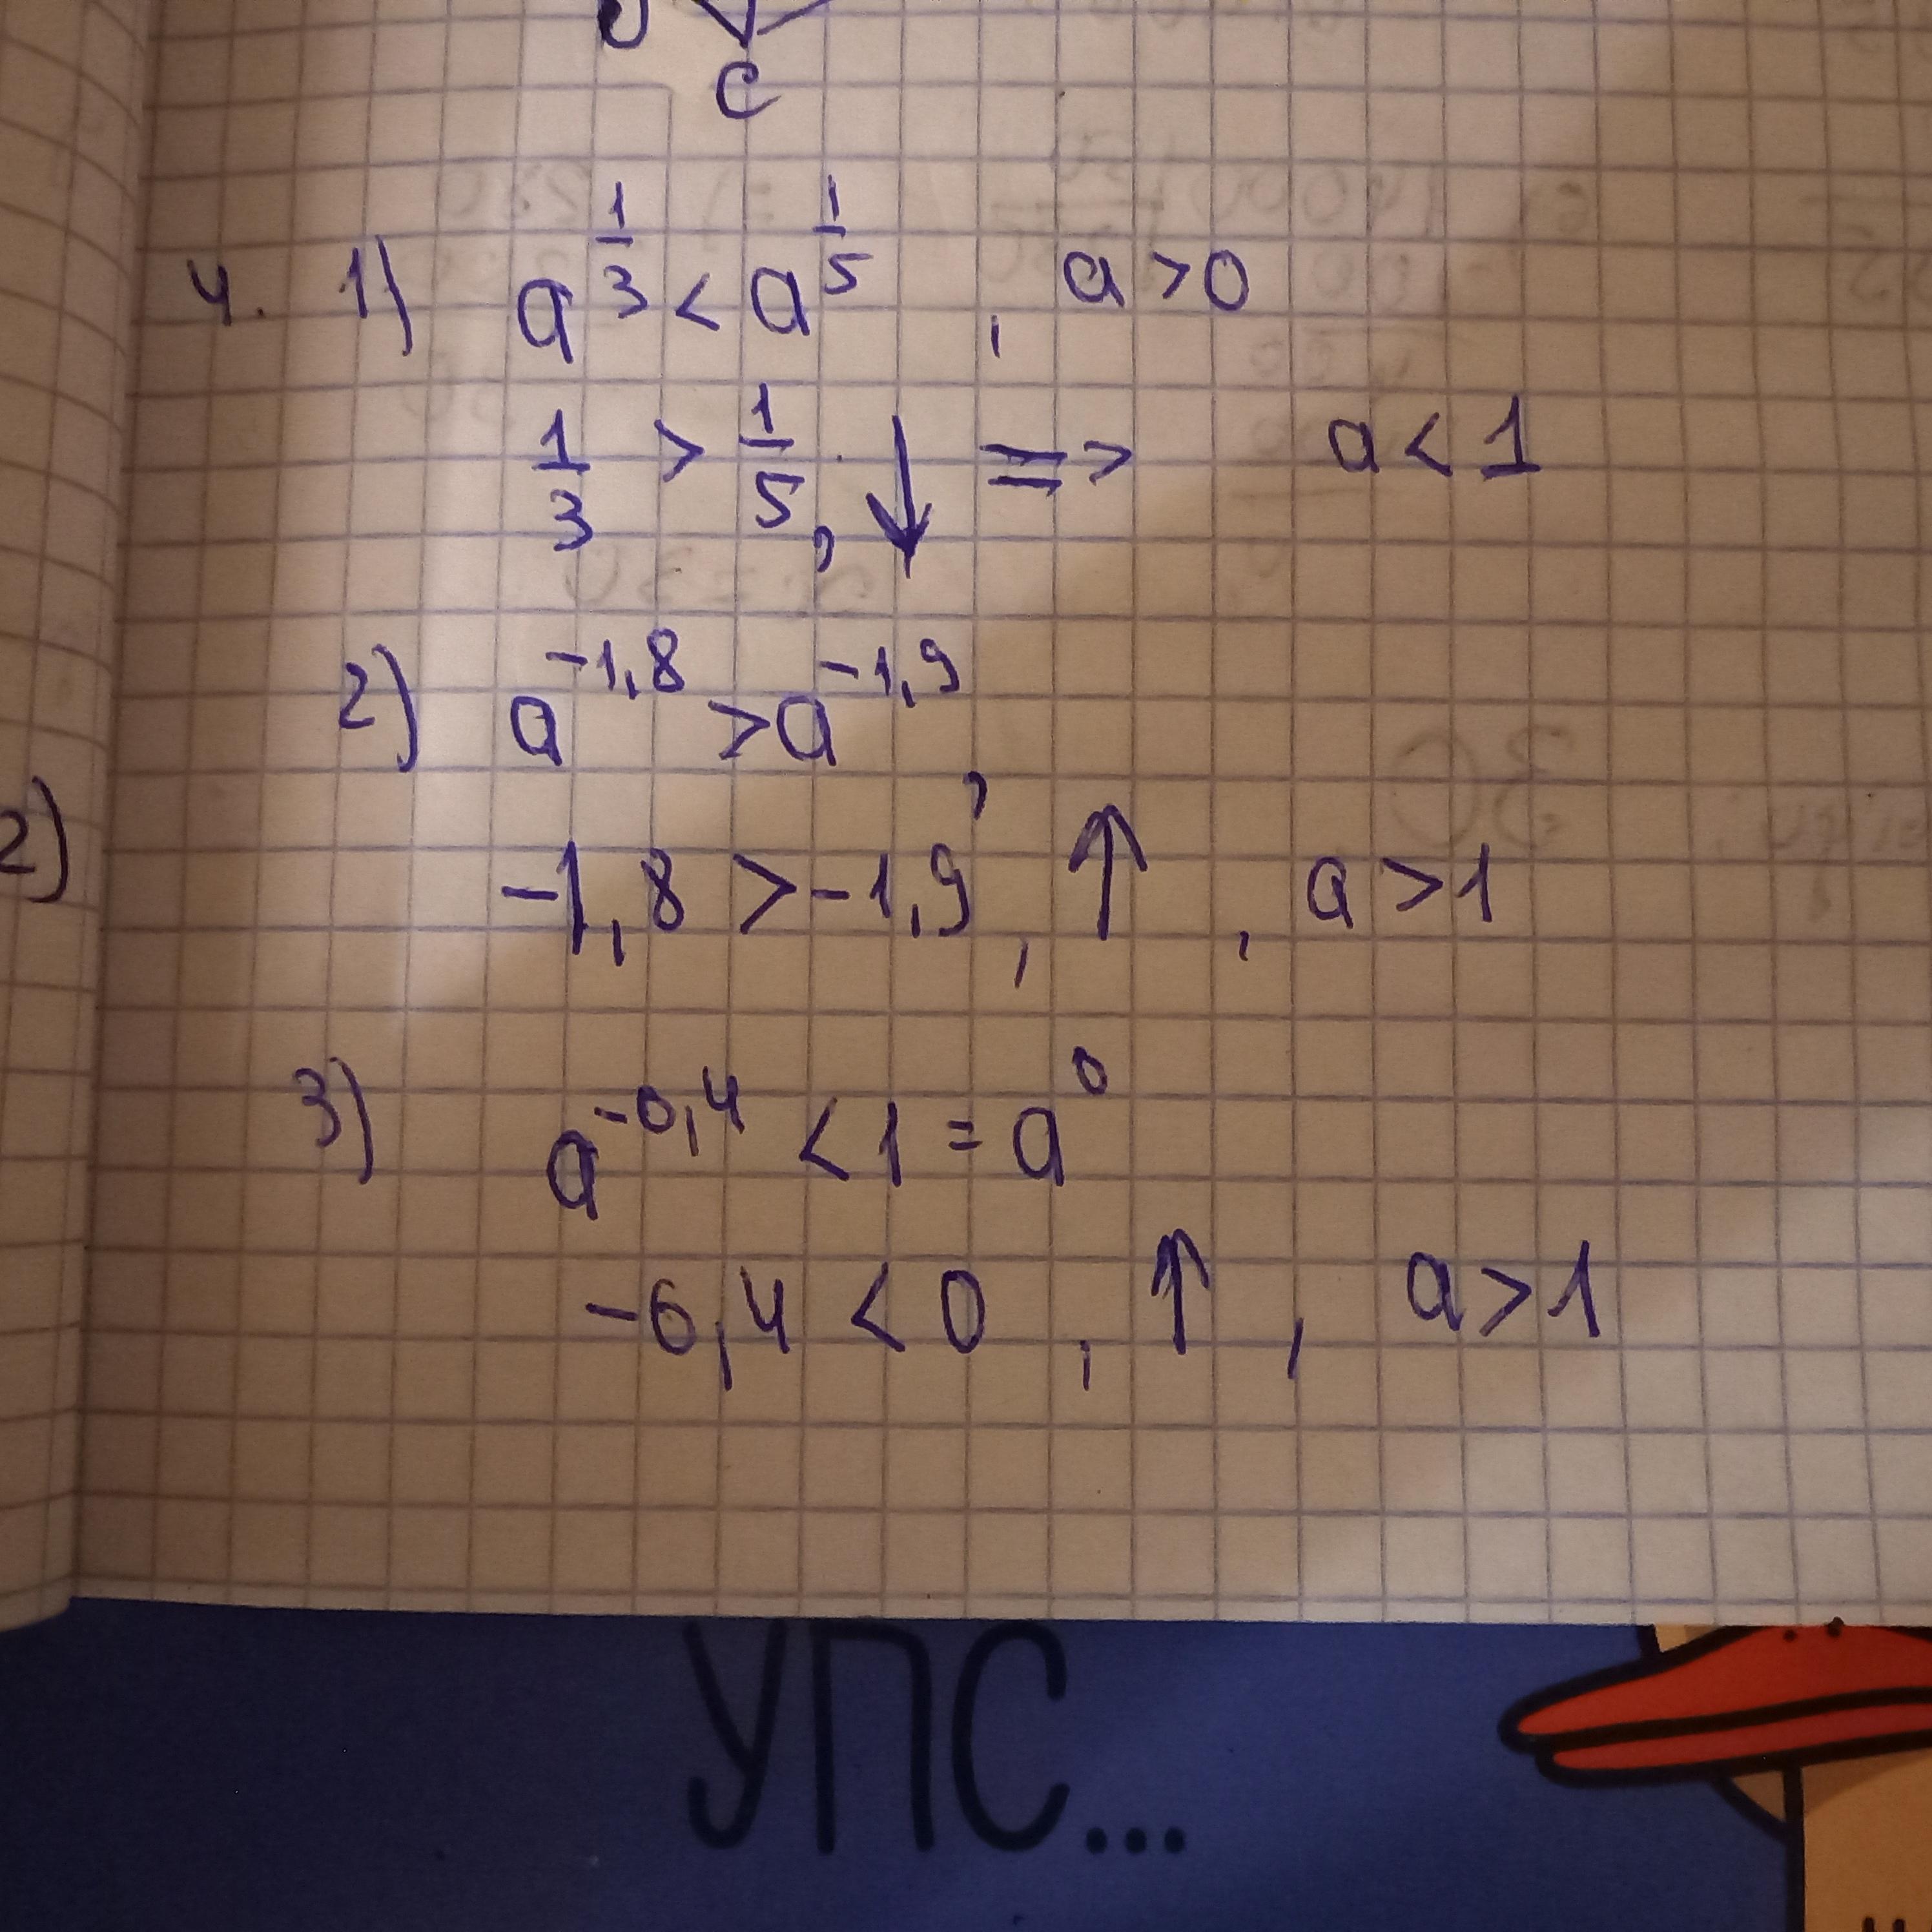 C
4. 1) a^(1/3) < a^(1/5) , a > 0
1/3 > 1/5, ↓ => a < 1
2) a^(-1,8) > a^(-1,9) ,
2)
-1,8 > -1,9 , ↑ , a > 1
3) a^(-0,4) < 1 = a^0
-0,4 < 0 , ↑ , a > 1
УПС...